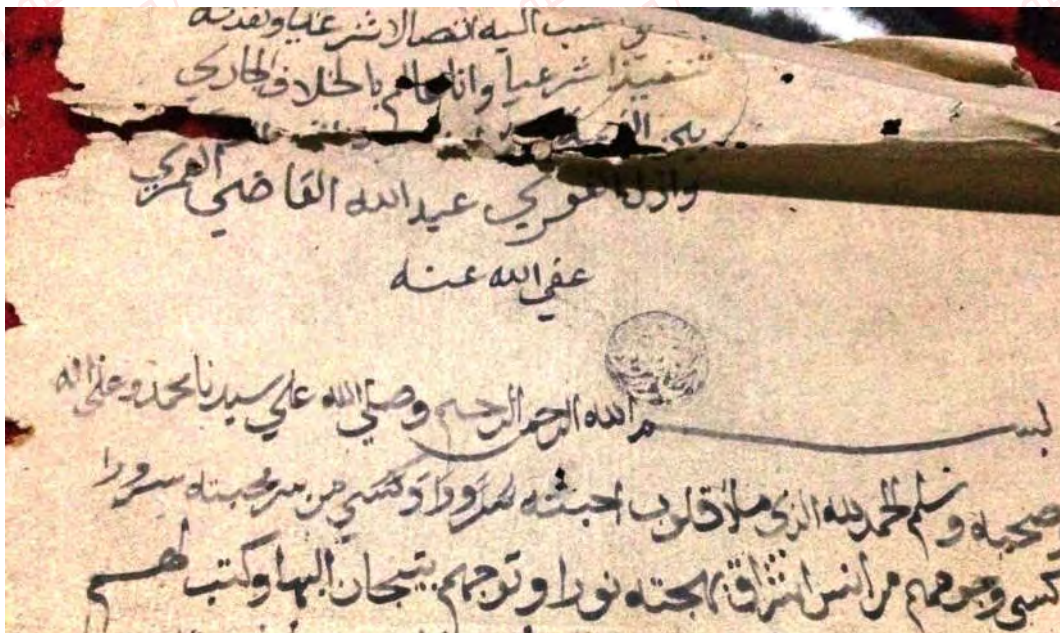 نسب اليه اتصالا شرعيا ونفذته
تنفيذا شرعيا وانا عالم بالخلاف الجاري
بين
عبد الله القاضي العمري
عفي الله عنه
بسم الله الرحمن الرحيم وصلي الله علي سيدنا محمد وعلي اله
وصحبه وسلم الحمد لله الذي ملا قلوب احبته سرورا وكسي من سر محبته سرورا
كسي وجوههم من انس اشراق بهجته نورا وتوجهم بتيجان البها وكتب لهم